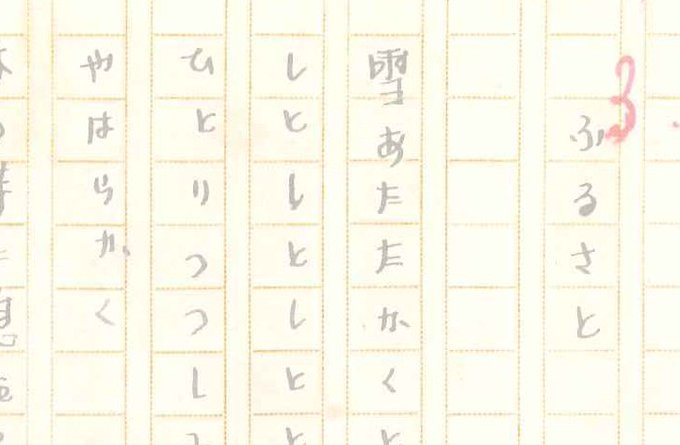 3
ふるさと
雪あたたかくと
しとしとしとと
ひとりつつし
やはらかく